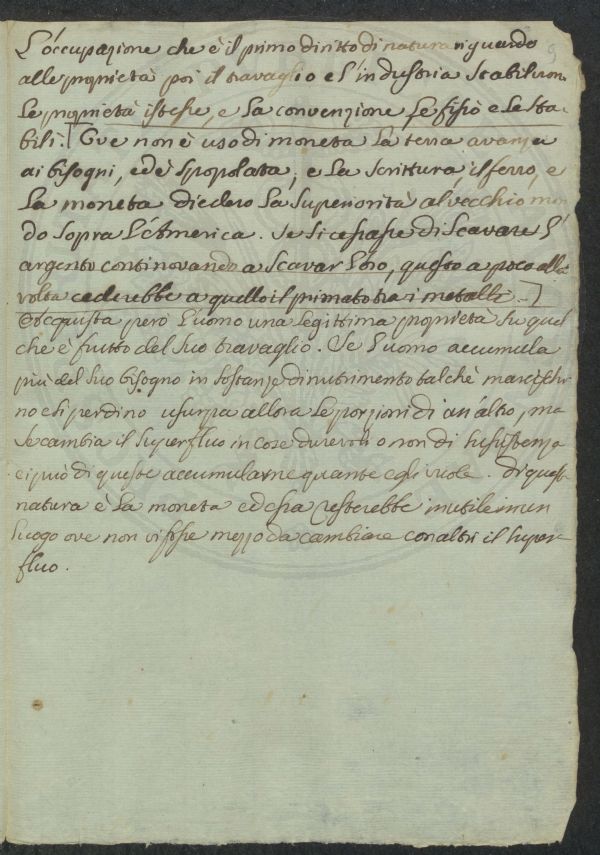 L'occupazione che è il primo diritto di natura riguardo
alle proprietà poi il travaglio e l'industria stabiliron
le proprietà istesse, e la convenzione le fissò e le sta-
bilì. [Ove non è uso di moneta la terra avanza
ai bisogni, ed è spopolata; e la scrittura, il ferro, e
la moneta diedero la superiorità al vecchio mon
do sopra l'America. Se si cessasse di scavare l'
argento continovando a scavar l'oro, questo a poco alla
volta cederebbe a quello il primato tra i metalli.]
Acquista però l'uomo una legittima proprietà su quel
che è frutto del suo travaglio. Se l'uomo accumula
più del suo bisogno in sostanze di nutrimento talchè marcischi-
no e si perdino usurpa allora le porzioni di un'altro, ma
se cambia il superfluo in cose durevoli o non di sussistenza
ei può di queste accumularne quante egli vuole. Di quest
natura è la moneta ed essa resterebbe inutile in un
luogo ove non vi fosse mezzo da cambiare con altri il super-
fluo.